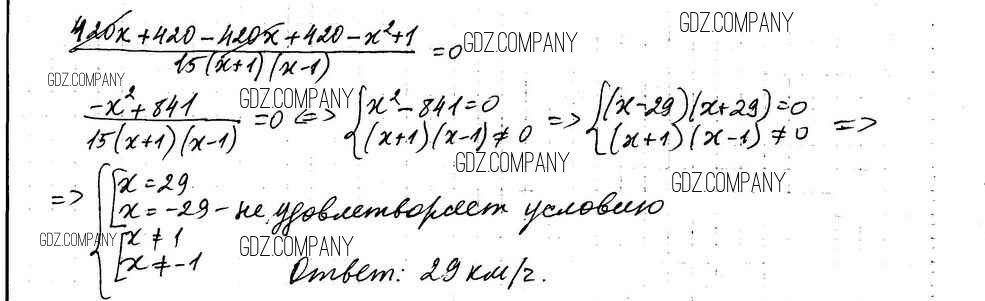 420x + 420 - 420x + 420 - x² + 1 / 15(x+1)(x-1) = 0
GDZ.COMPANY
GDZ.COMPANY
GDZ.COMPANY
-x² + 841 / 15(x+1)(x-1) = 0 <=> { x² - 841 = 0 (x+1)(x-1) ≠ 0 => { (x-29)(x+29) = 0 (x+1)(x-1) ≠ 0 =>
GDZ.COMPANY
GDZ.COMPANY
GDZ.COMPANY
=> { [ x = 29
x = -29 - не удовлетворяет условию
[ x ≠ 1
x ≠ -1
GDZ.COMPANY
GDZ.COMPANY
Ответ: 29 км/ч.